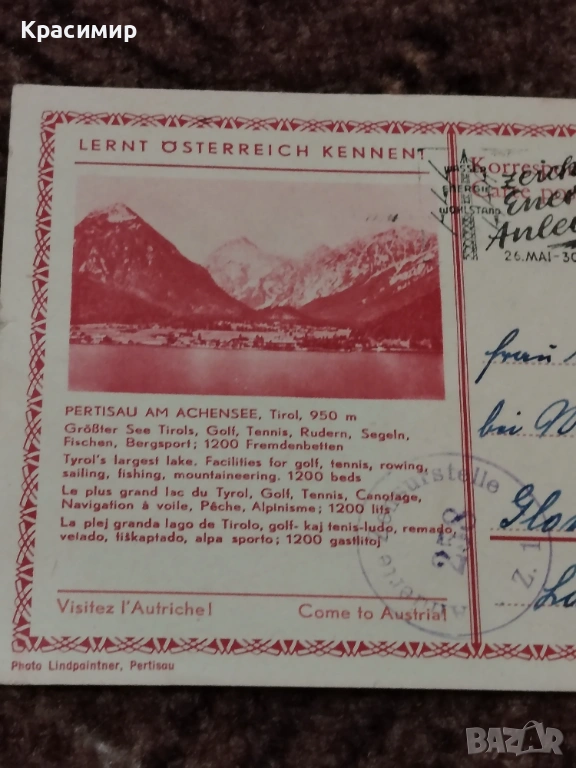 Красимир
LERNT ÖSTERREICH KENNEN!
PERTISAU AM ACHENSEE, Tirol, 950 m
Größter See Tirols, Golf, Tennis, Rudern, Segeln,
Fischen, Bergsport; 1200 Fremdenbetten
Tyrol's largest lake. Facilities for golf, tennis, rowing,
sailing, fishing, mountaineering. 1200 beds
Le plus grand lac du Tyrol, Golf, Tennis, Canotage,
Navigation à voile, Pêche, Alpinisme; 1200 lits
La plej granda lago de Tirolo, golf- kaj tenis-ludo, remado,
velado, fiŝkaptado, alpa sporto; 1200 gastlitoj
Visitez l'Autriche! Come to Austria!
Photo Lindpaintner, Pertisau
ENERGIE
WOHLSTAND
Zeich
Ener
Anlei
26.MAI-30
Frau
bei
Zensurstelle
2508
Z. 1
BAZAR